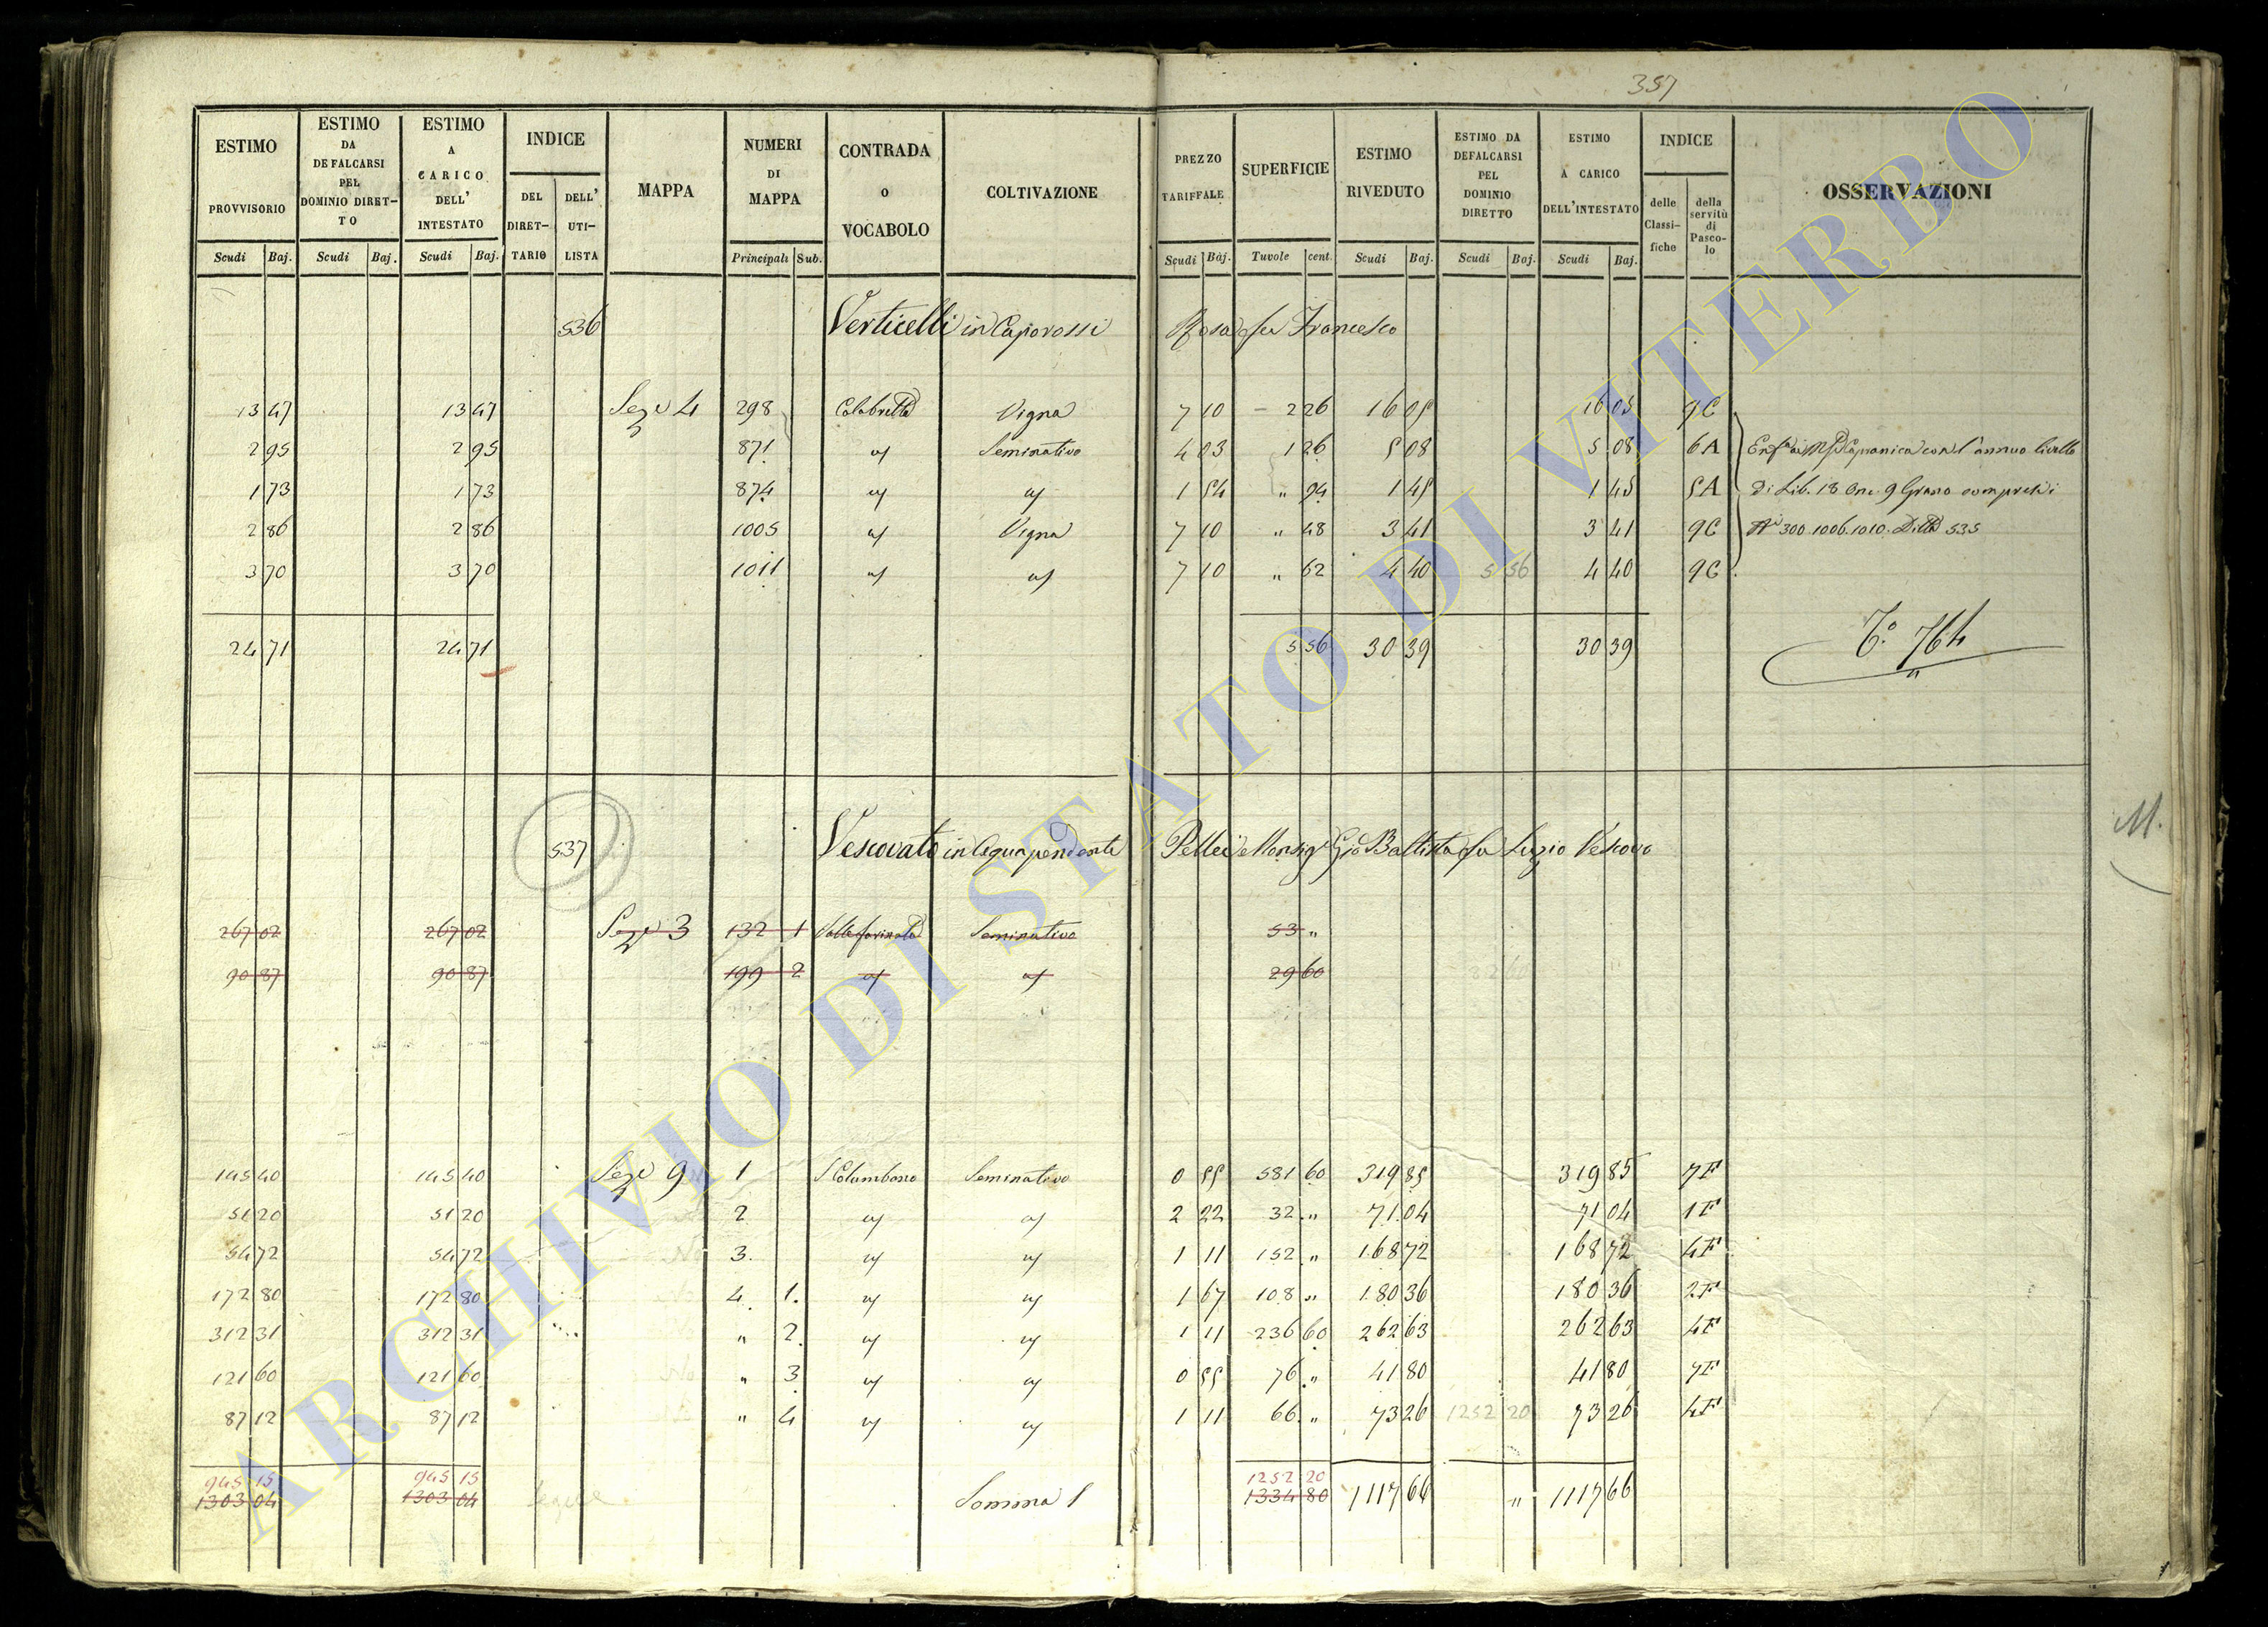 357
ESTIMO PROVVISORIO | ESTIMO DA DEFALCARSI PEL DOMINIO DIRETTO | ESTIMO A CARICO DELL' INTESTATO | INDICE DEL DIRETTARIO | DELL' UTILISTA | MAPPA | NUMERI DI MAPPA | CONTRADA o VOCABOLO | COLTIVAZIONE | PREZZO TARIFFALE | SUPERFICIE | ESTIMO RIVEDUTO | ESTIMO DA DEFALCARSI PEL DOMINIO DIRETTO | ESTIMO A CARICO DELL'INTESTATO | INDICE delle Classifiche | della servitù di Pascolo | OSSERVAZIONI
Scudi Baj. | Scudi Baj. | Scudi Baj. | Principali Sub. | Scudi Baj. | Tuvole cent. | Scudi Baj. | Scudi Baj. | Scudi Baj.
536 Verticelli in Caporossi Rosa fu Francesco
13 47 | 13 47 | Seze 4 | 298 | Calabretta | Vigna | 7 10 | 2 26 | 16 05 | 16 05 | 9C
2 95 | 2 95 | 871 | " | Seminativo | 4 03 | 1 26 | 5 08 | 5 08 | 6A | Capranica con l'annuo livello
1 73 | 1 73 | 874 | " | " | 1 54 | " 94 | 1 45 | 1 45 | 5A | di Lib. 18 One. 9 Grano compresi i
2 86 | 2 86 | 1005 | " | Vigna | 7 10 | " 48 | 3 41 | 3 41 | 9C | Ni 300.1006.1010. Ditta 535
3 70 | 3 70 | 1011 | " | " | 7 10 | " 62 | 4 40 | 5 56 | 4 40 | 9C
24 71 | 24 71 | 5 56 | 30 39 | 30 39 | T.o 764
M.
537 Vescovato in Acquapendente Pellei Monsigr Gio Battista fu Luzio Vescovo
267 02 | 267 02 | Seze 3 | 132 1 | Seminativo | 53 "
90 87 | 90 87 | 199 2 | " | " | 29 60
145 40 | 145 40 | Seze 9 | 1 | S Colombano | Seminativo | 0 55 | 581 60 | 319 85 | 319 85 | 7F
51 20 | 51 20 | 2 | " | " | 2 22 | 32 " | 71 04 | 71 04 | 1F
54 72 | 54 72 | 3 | " | " | 1 11 | 152 " | 168 72 | 168 72 | 4F
172 80 | 172 80 | 4 1. | " | " | 1 67 | 108 " | 180 36 | 180 36 | 2F
312 31 | 312 31 | " 2. | " | " | 1 11 | 236 60 | 262 63 | 262 63 | 4F
121 60 | 121 60 | " 3 | " | " | 0 55 | 76 " | 41 80 | 41 80 | 7F
87 12 | 87 12 | " 4 | " | " | 1 11 | 66 " | 73 26 | 1252 20 | 73 26 | 4F
945 15 | 945 15 | 1252 20
1303 04 | 1303 04 | Segue | Somma 1 | 1334 80 | 1117 66 | " | 1117 66
ARCHIVIO DI STATO DI VITERBO